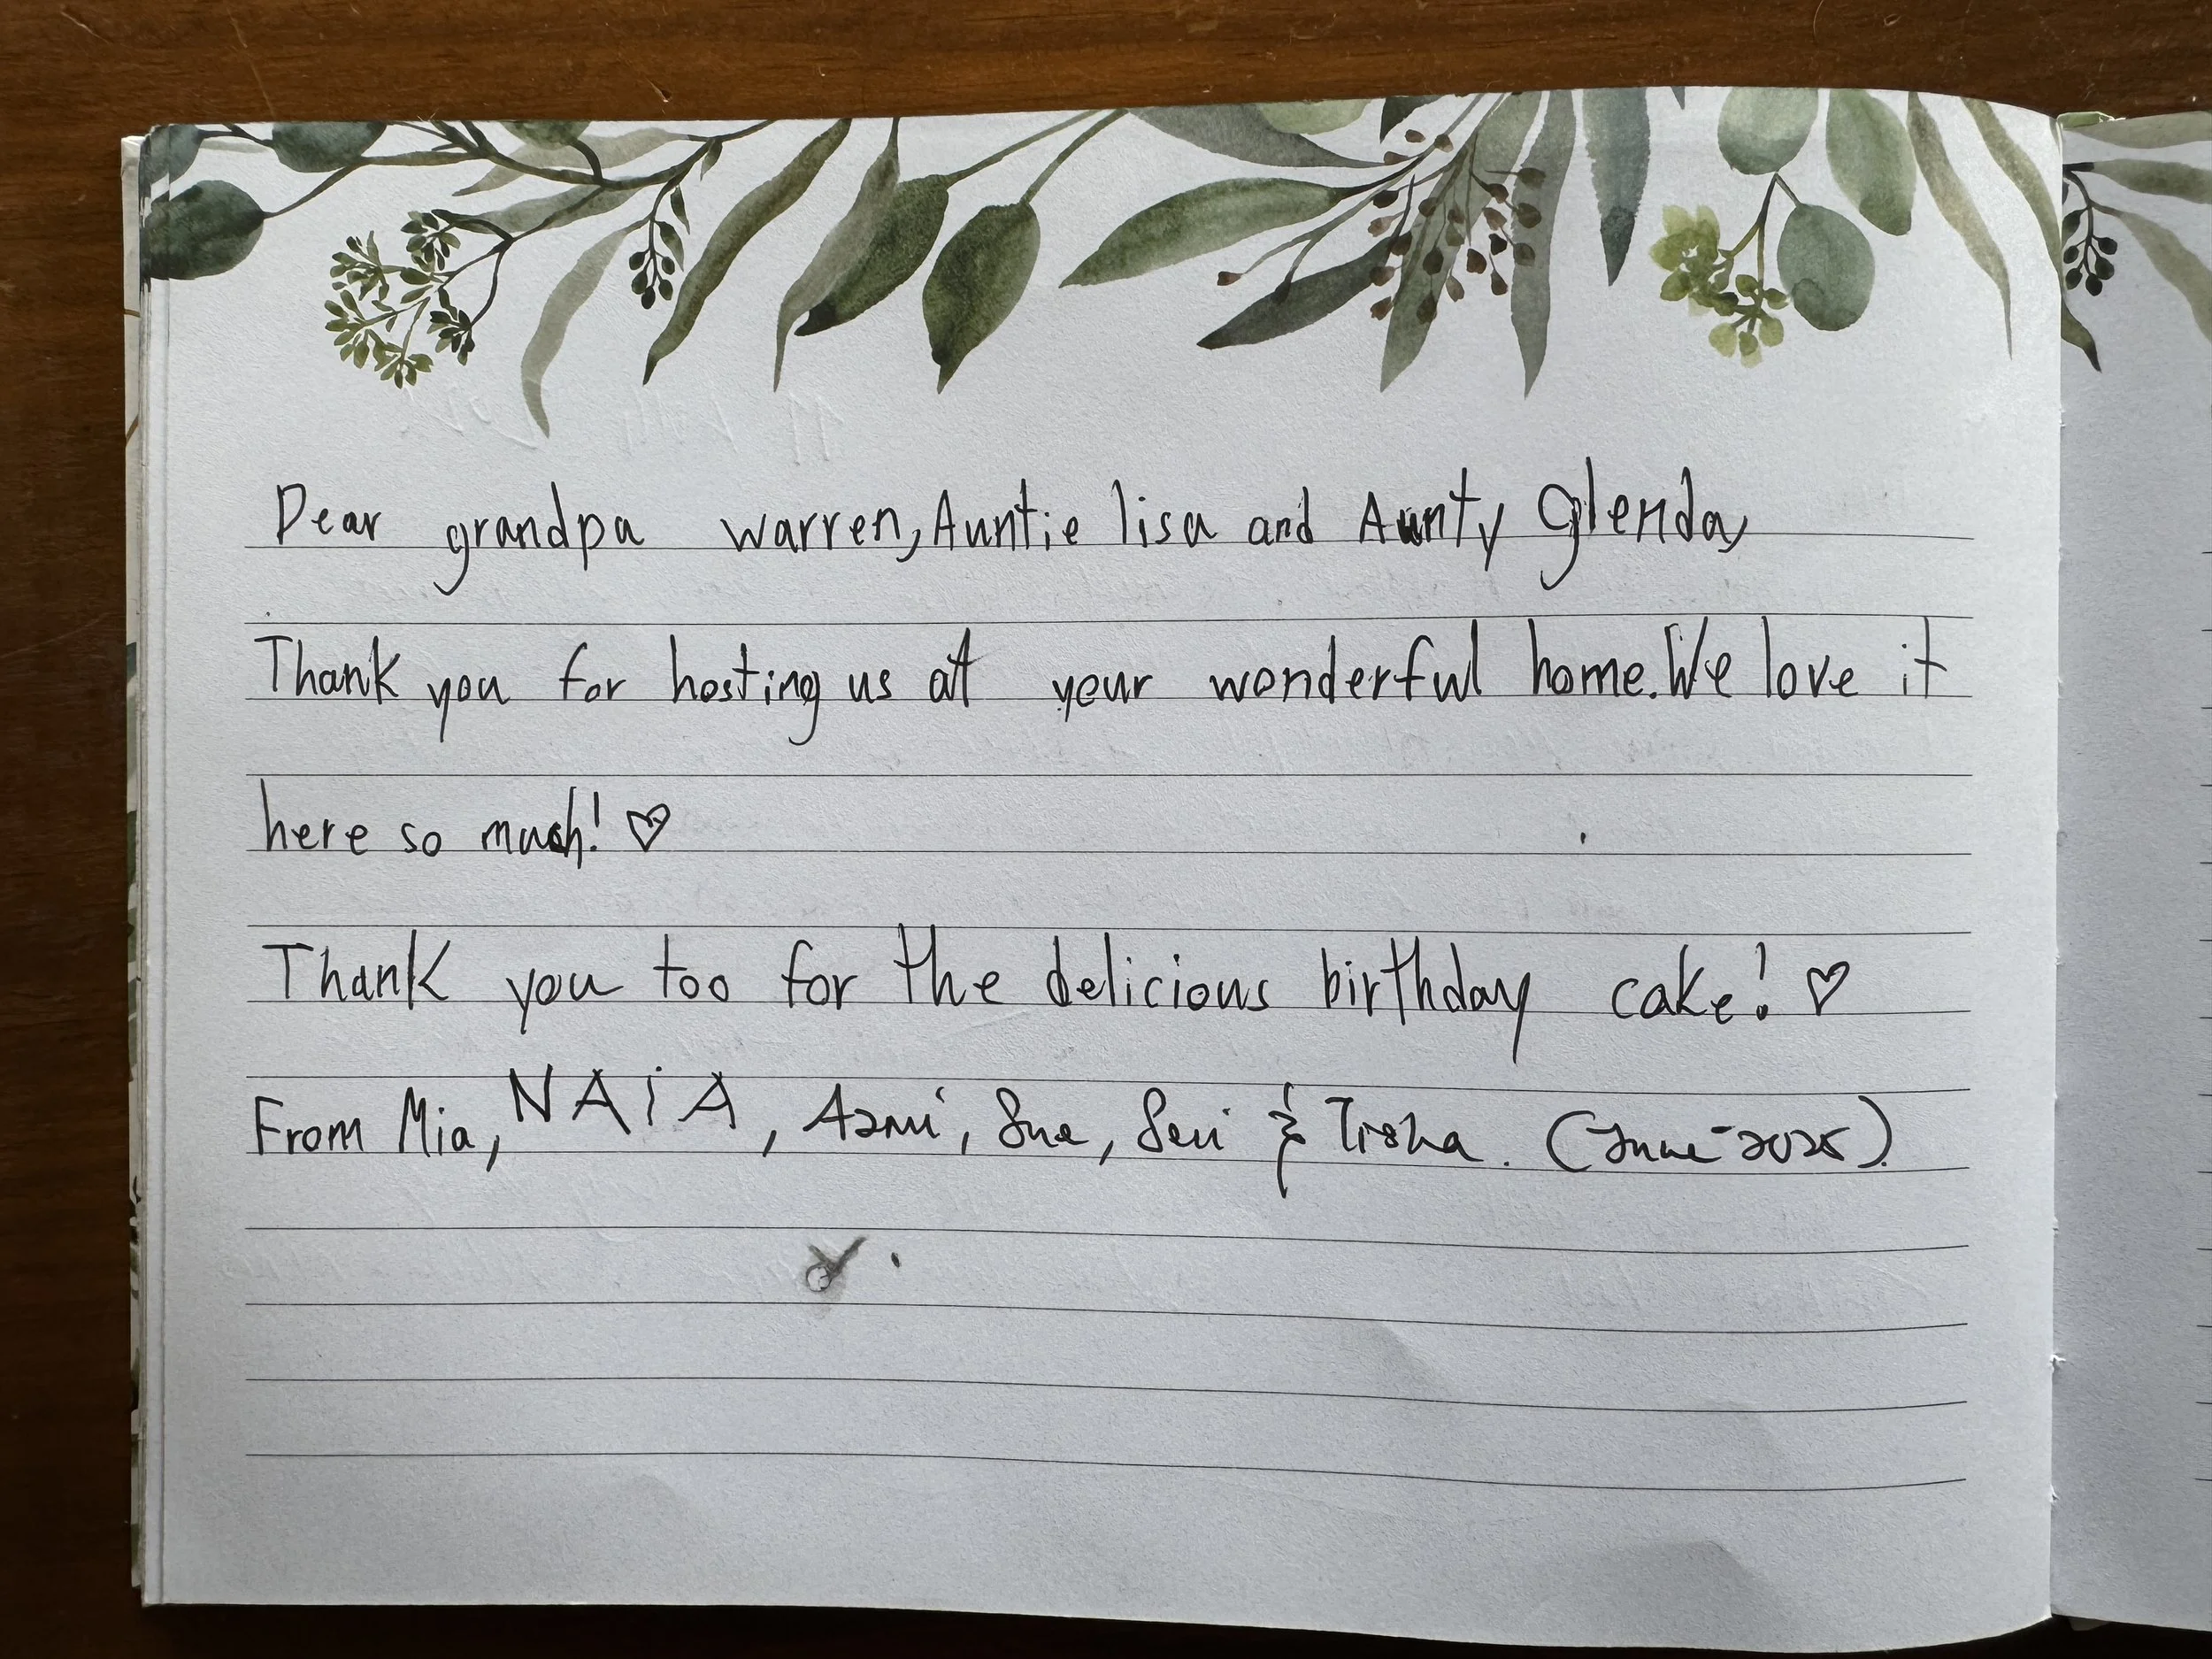 Dear grandpa warren, Auntie lisa and Aunty Glenda,
Thank you for hosting us at your wonderful home. We love it
here so much! ♡
Thank you too for the delicious birthday cake! ♡
From Mia, NAiA, Azmi, Sue, Seri & Tisha. (June 2025).